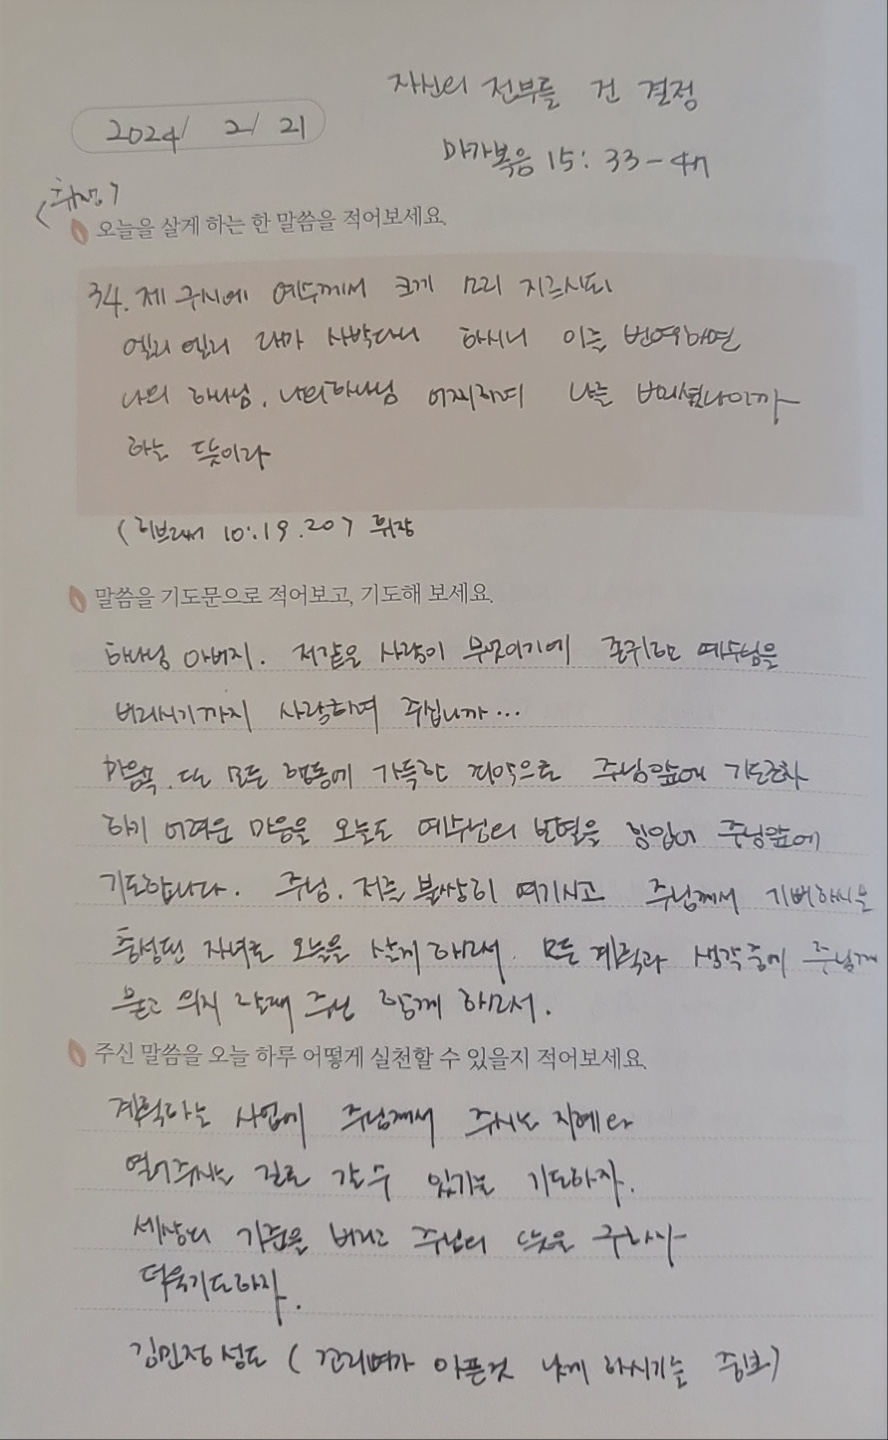 자신의 전부를 건 결정
2024/ 2/ 21
마가복음 15: 33-47
<휘장>
오늘을 살게 하는 한 말씀을 적어보세요.
34. 제 구시에 예수께서 크게 소리 지르시되
엘리 엘리 라마 사박다니 하시니 이를 번역하면
나의 하나님, 나의 하나님 어찌하여 나를 버리셨나이까
하는 뜻이라
(히브리서 10:19.20) 휘장
말씀을 기도문으로 적어보고, 기도해 보세요.
하나님 아버지. 저같은 사람이 무엇이기에 존귀한 예수님을
버리시기까지 사랑하여 주십니까...
마음속. 또는 모든 행동에 가득한 죄악으로 주님앞에 기도조차
하기 어려운 마음을 오늘도 예수님의 보혈을 힘입어 주님앞에
기도합니다. 주님. 저를 불쌍히 여기시고 주님께서 기뻐하시는
충성된 자녀로 오늘을 살게 하소서. 모든 계획과 생각중에 주님께
묻고 의지 할때 주님 함께 하소서.
주신 말씀을 오늘 하루 어떻게 실천할 수 있을지 적어보세요.
계획하는 사업에 주님께서 주시는 지혜와
열어주시는 길로 갈 수 있기를 기도하자.
세상의 기준을 버리고 주님의 뜻을 구하자
더욱 기도하자.
김민정 성도 (꼬리뼈가 아픈것 낫게 하시기를 중보)